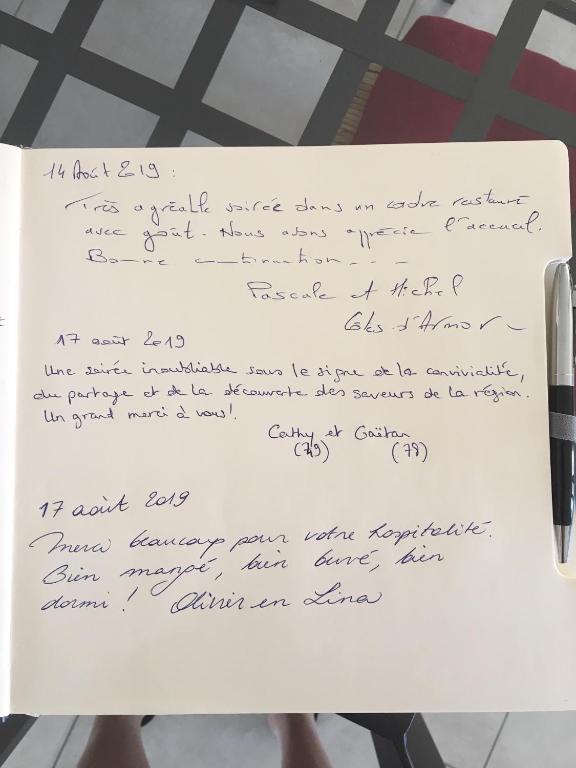 14 Août 2019 :
Très agréable soirée dans un cadre restauré
avec goût. Nous avons apprécié l'accueil.
Bonne continuation ...
Pascale et Michel
Côtes d'Armor
17 août 2019
Une soirée inoubliable sous le signe de la convivialité,
du partage et de la découverte des saveurs de la région.
Un grand merci à vous!
Cathy et Gaëtan
(79) (78)
17 août 2019
Merci beaucoup pour votre hospitalité.
Bien mangé, bien buvé, bien
dormi! Olivier en Lina